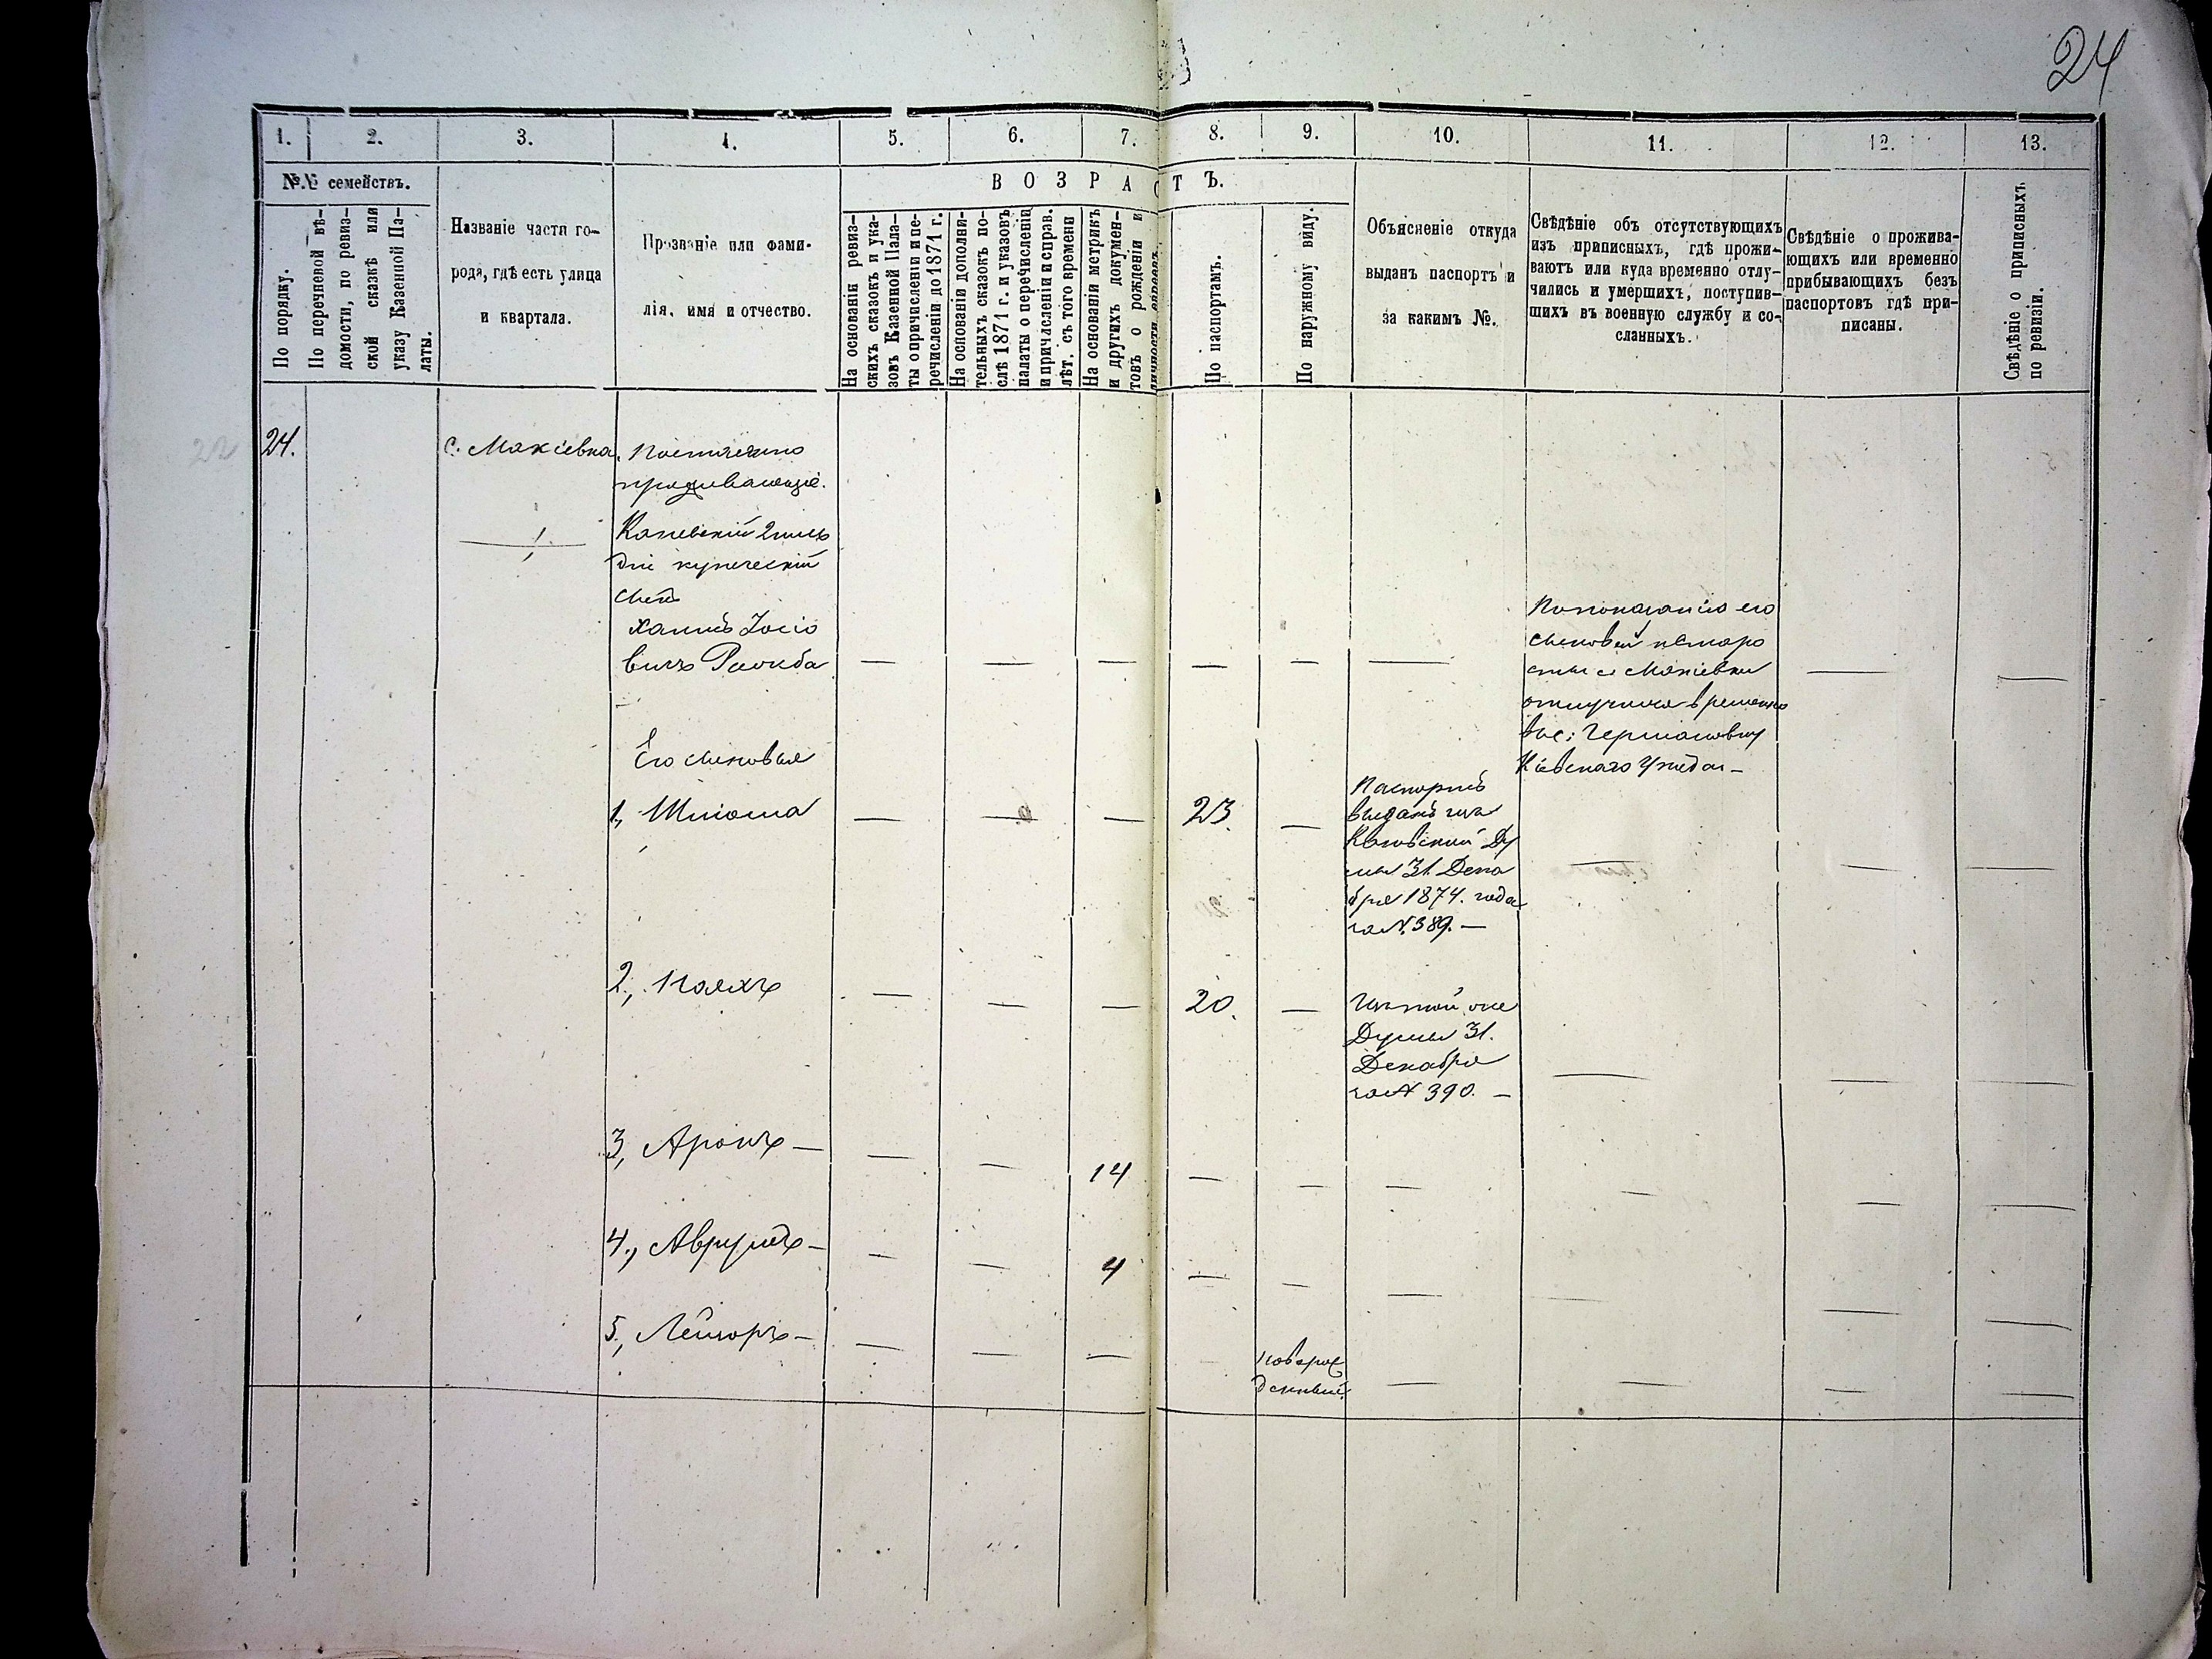 24
1. 2. 3. 4. 5. 6. 7. 8. 9. 10. 11. 12. 13.
№.№ семействъ.
ВОЗРАСТЪ.
По порядку.
По перечневой вѣ-
домости, по ревиз-
ской сказкѣ или
указу Казенной Па-
латы.
Названіе части го-
рода, гдѣ есть улица
и квартала.
Прозваніе или фами-
лія, имя и отчество.
На основаніи ревиз-
скихъ сказокъ и ука-
зовъ Казенной Пала-
ты о причисленіи и пе-
речисленіи до 1871 г.
На основаніи дополни-
тельныхъ сказокъ по-
слѣ 1871 г. и указовъ
палаты о перечисленіи
и причисленіи и справ.
лѣт. съ того времени
На основаніи метрикъ
и другихъ докумен-
товъ о рожденіи и
личности евреевъ.
По паспортамъ.
По наружному виду.
Объясненіе откуда
выданъ паспортъ и
за какимъ №.
Свѣдѣніе объ отсутствующихъ
изъ приписныхъ, гдѣ прожи-
ваютъ или куда временно отлу-
чились и умершихъ, поступив-
шихъ въ военную службу и со-
сланныхъ.
Свѣдѣніе о прожива-
ющихъ или временно
прибывающихъ безъ
паспортовъ гдѣ при-
писаны.
Свѣдѣніе о приписныхъ
по ревизіи.
22
24.
с. Макіевка.
Постоянно
проживающіе.
Каневскій 2 гиль
діи купеческій
сынъ
Хаимъ Іосіо
вичъ
— — — — — —
По показанію его
сыновей и старо
сты с. Макіевки
отлучился временно
въ с.
Кіевскаго Уѣзда —
— —
Его сыновья
1, Шлiома — — — 23. —
Паспортъ
выданъ изъ
Каневской Ду
мы 31. Дека
бря 1874. года
за №. 389. —
— — —
2, — — — 20. —
Изъ той же
Думы 31.
Декабря
за № 390. —
— — —
3, Аронъ — — — 14 — — — — — —
4, Аврумъ — — — 4 — — — — — —
5, Лейзоръ — — — —
новорож
денный.
— — — —